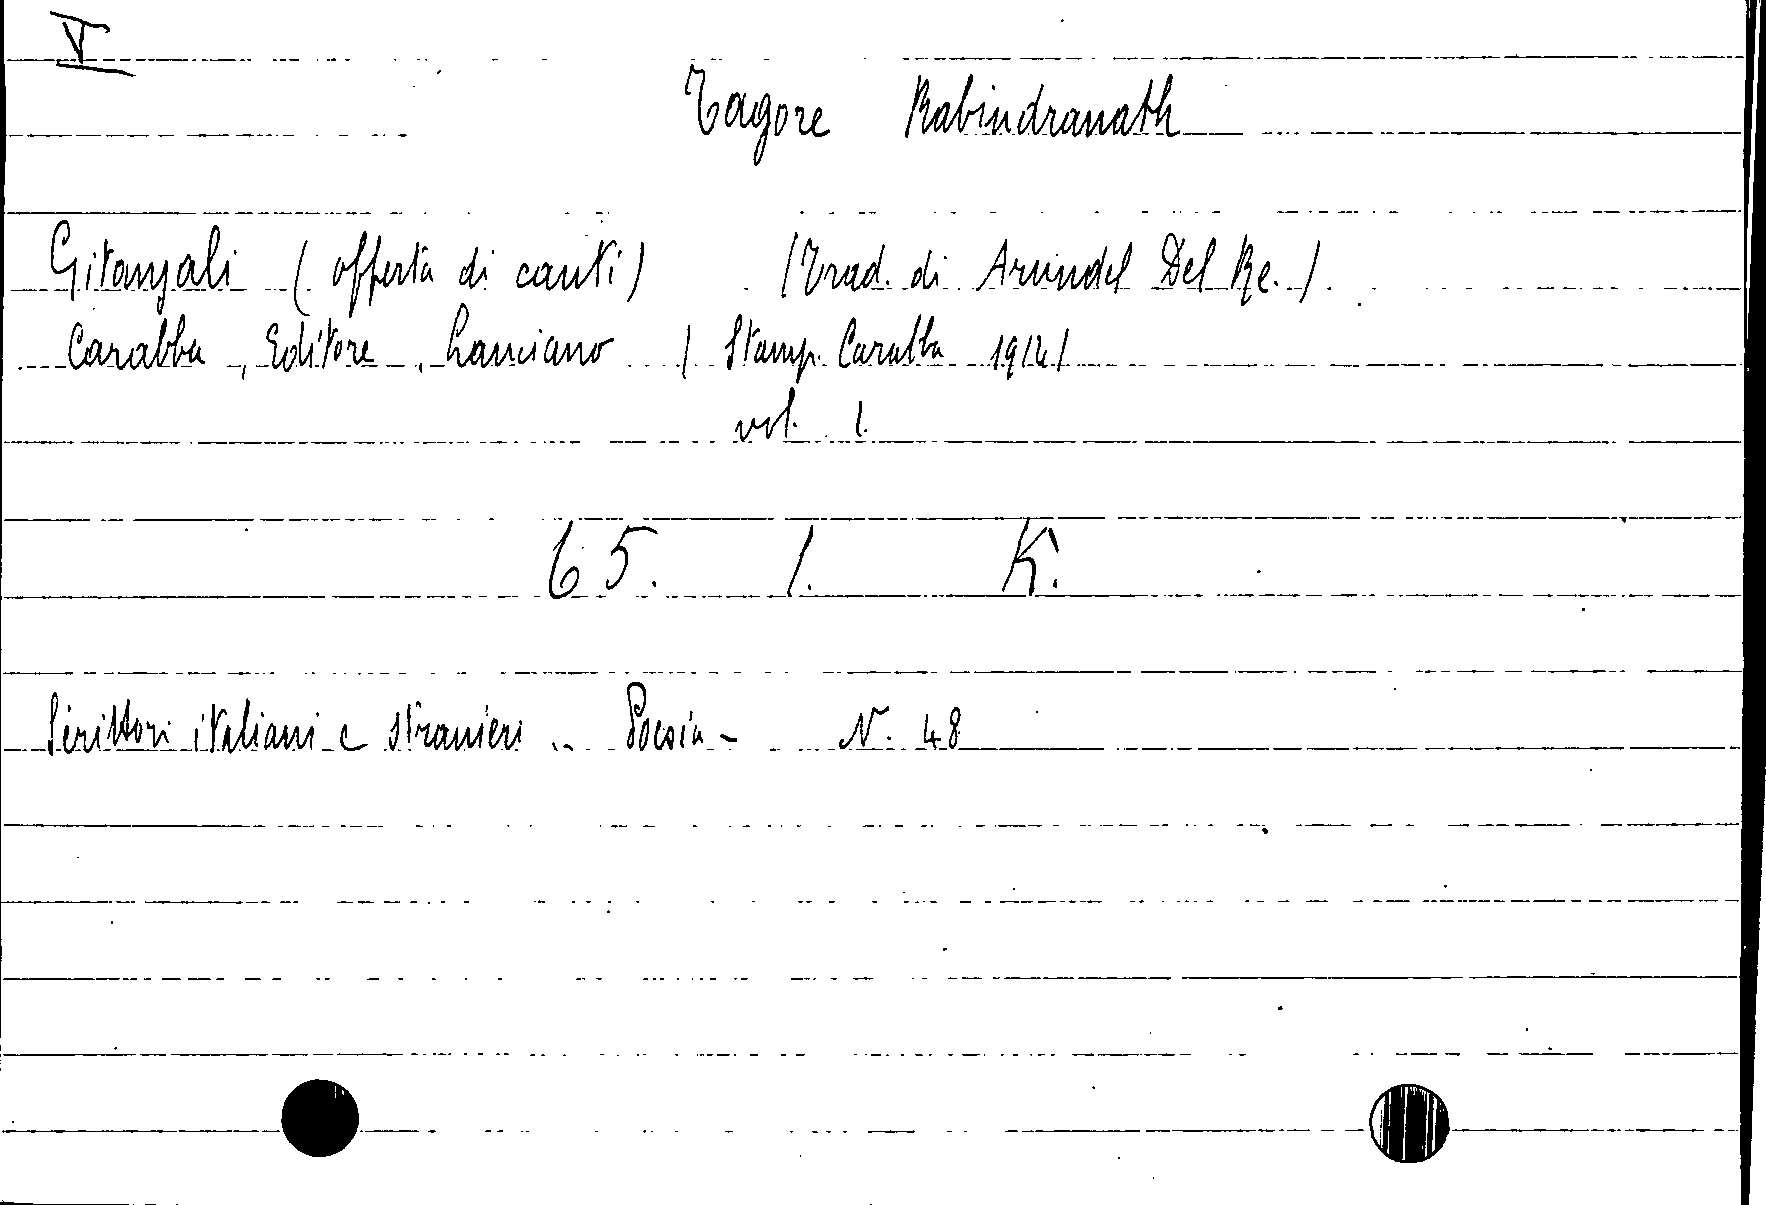 V
Tagore Rabindranath
Gitanyali (offerta di canti) (Trad. di Arundel Del Re.)
Carabba, Editore, Lanciano (Stamp. Carabba 1914)
vol. 1.
65. 1. K.
Scrittori italiani e stranieri - Poesia - N. 48